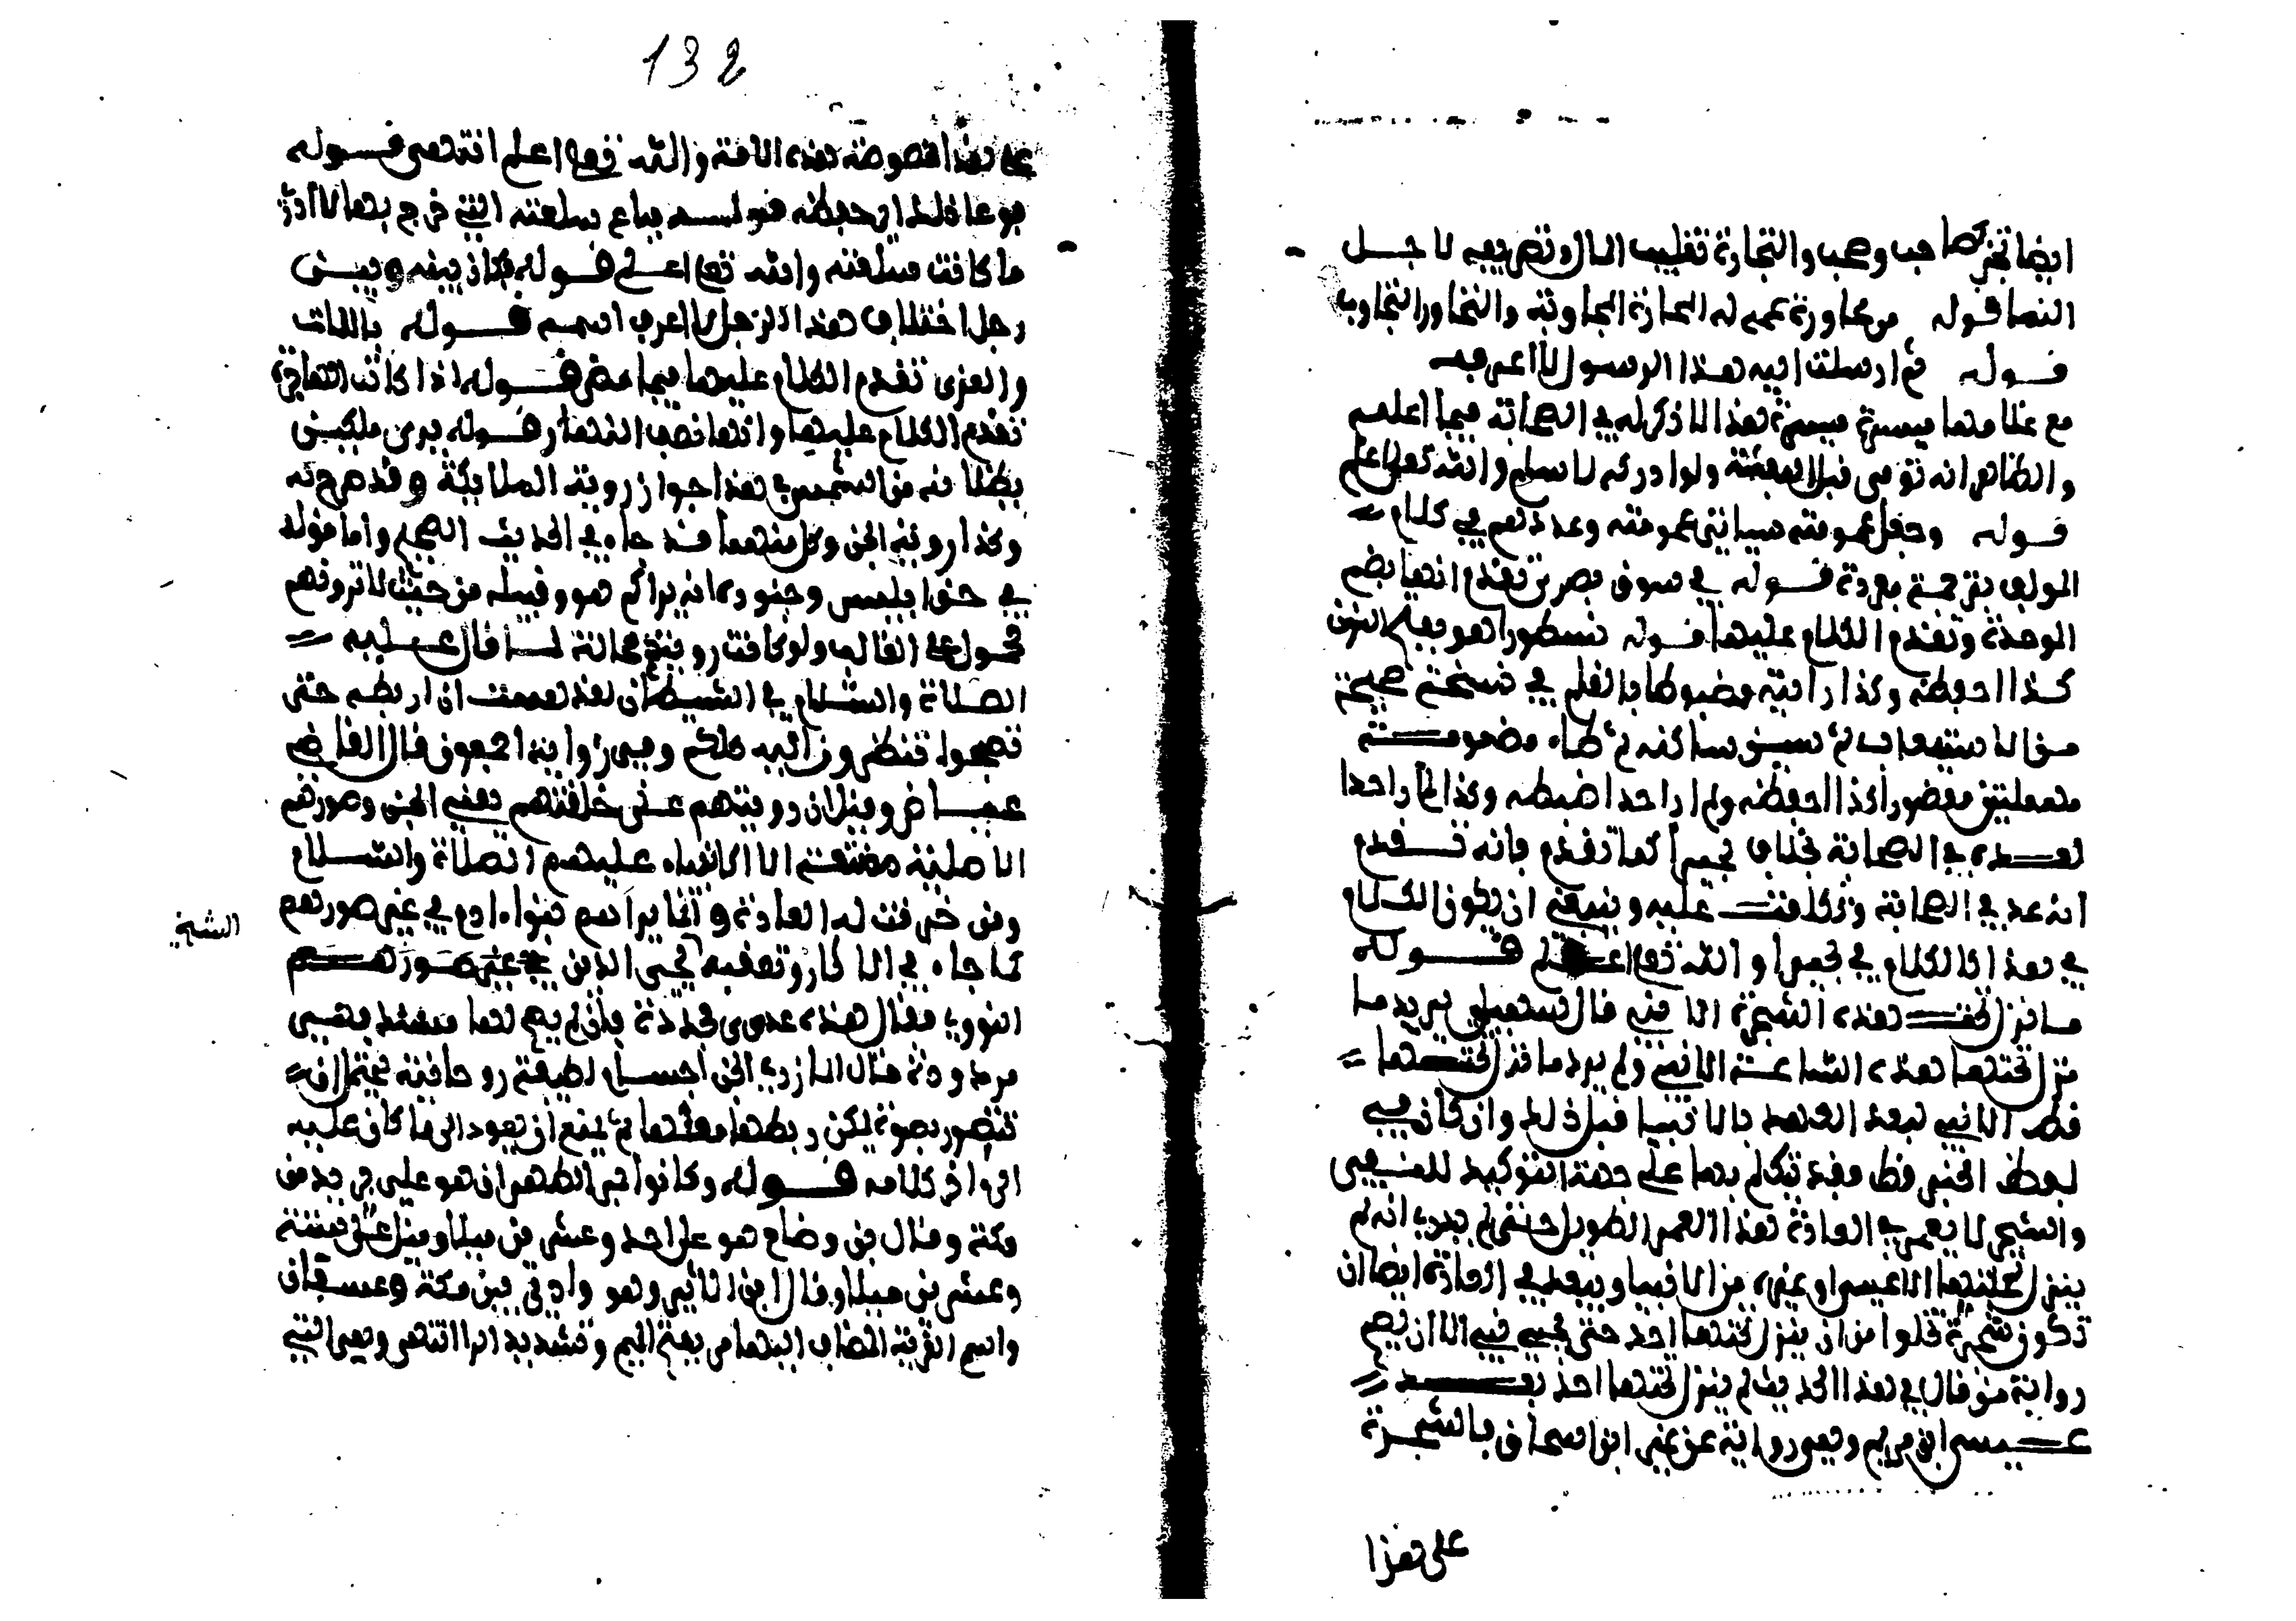 ايضا تجر كصاحب وصحب والتجارة تقليب المال وتصريفه لاجل
النما قوله من محاورة عمه له المحاورة المجاوبة والتحاور التجاوب
قوله ثم ارسلت اليه هذا الرسول لا اعرفه
مع غلامها ميسرة ميسرة هذا لا ذكر له في الصحابة فيما اعلم
والظاهر انه توفي قبل البعثة ولو ادركه لاسلم والله تعالى اعلم
قوله وجعل عمومته سياتي عمومته وعددهم في كلام
المولف بترجمة مفردة قوله في سوق بصرى تقدم انها بضم
الموحدة وتقدم الكلام عليها قوله نسطورا هو بفتح النون
كذا احفظه وكذا رايته مضبوطا بالقلم في نسخة صحيحة
من الاستيعاب ثم سين ساكنة ثم طاء مضمومة
مهملتين مقصورا كذا احفظه ولم ار احدا ضبطه وكذا لم ار احدا
عده في الصحابة بخلاف بحيرا كما تقدم فانه تقدم
انه عد في الصحابة وتكلمت عليه وينبغي ان يكون الكلام
في هذا كالكلام في بحيرا والله تعالى اعلم قوله
ما نزل تحت هذه الشجرة الا نبي قال السهيلي يريد ما
نزل تحتها هذه الساعة الا نبي ولم يرد ما نزل تحتها
قط الا نبي لبعد العهد بالانبيا قبل ذلك وان كان في
لفظ الخبر قط فقد تكلم بها على جهة التوكيد للنفي
والشجر لا يعمر في العادة هذا العمر الطويل حتى يدرى انه لم
ينزل تحتها الا عيسى او غيره من الانبيا ويبعد في العادة ايضا ان
تكون شجرة تخلوا من ان ينزل تحتها احد حتى يجيى نبي الا ان تصح
رواية من قال في هذا الحديث لم ينزل تحتها احد بعد
عيسى ابن مريم وهي رواية عن غير ابن اسحاق فالشجرة
على هذا
132
على هذا مخصوصة بهذه الاية والله تعالى اعلم انتهى قوله
فباع سلعته التي خرج بها لا ادري
ما كانت سلعته والله تعالى اعلم قوله فكان بينه وبين
رجل اختلاف هذا الرجل لا اعرف اسمه قوله باللات
والعزى تقدم الكلام عليهما فيما مضى قوله اذا كانت الهاجرة
تقدم الكلام عليها وانها نصف النهار قوله يرى ملكين
يظلانه من الشمس في هذا جواز روية الملايكة وقد صرح به
وكذا روية الجن وكل منهما قد جاء في الحديث الصحيح واما قوله
في حق ابليس وجنوده انه يراكم هو وقبيله من حيث لا ترونهم
محمول على الغالب ولو كانت رويتهم محالة لما قال عليه
الصلاة والسلام في الشيطان لقد هممت ان اربطه حتى
تصبحوا تنظرون اليه كلكم وفي رواية اجمعون قال القاضي
عياض وقيل ان رويتهم على خلقتهم يعني الجن وصورهم
الاصلية ممتنعة الا الانبياء عليهم الصلاة والسلام
ومن خرقت له العادة وانما يراهم بنوا ادم في غير صورهم
كما جاء في الاثار وتعقبه محيي الدين في غير صورهم
الشيخ
النووي فقال هذه دعوى مجردة فان لم يصح لها مستند فهي
مردودة قال المازري الجن اجسام لطيفة روحانية فيحتمل ان
تتصور بصورة يمكن ربطها معها ثم يمنع ان يعود الى ما كان عليه
الى اخر كلامه قوله وكانوا بمر الظهران هو على بريد من
مكة وقال ابن وضاح هو على احد وعشرين ميلا وقيل على ستة
وعشرين ميلا وقال ابن الاثير وهو وادي بين مكة وعسفان
واسم القرية المضاف اليها مر بفتح الميم وتشديد الرا انتهى وهي التي